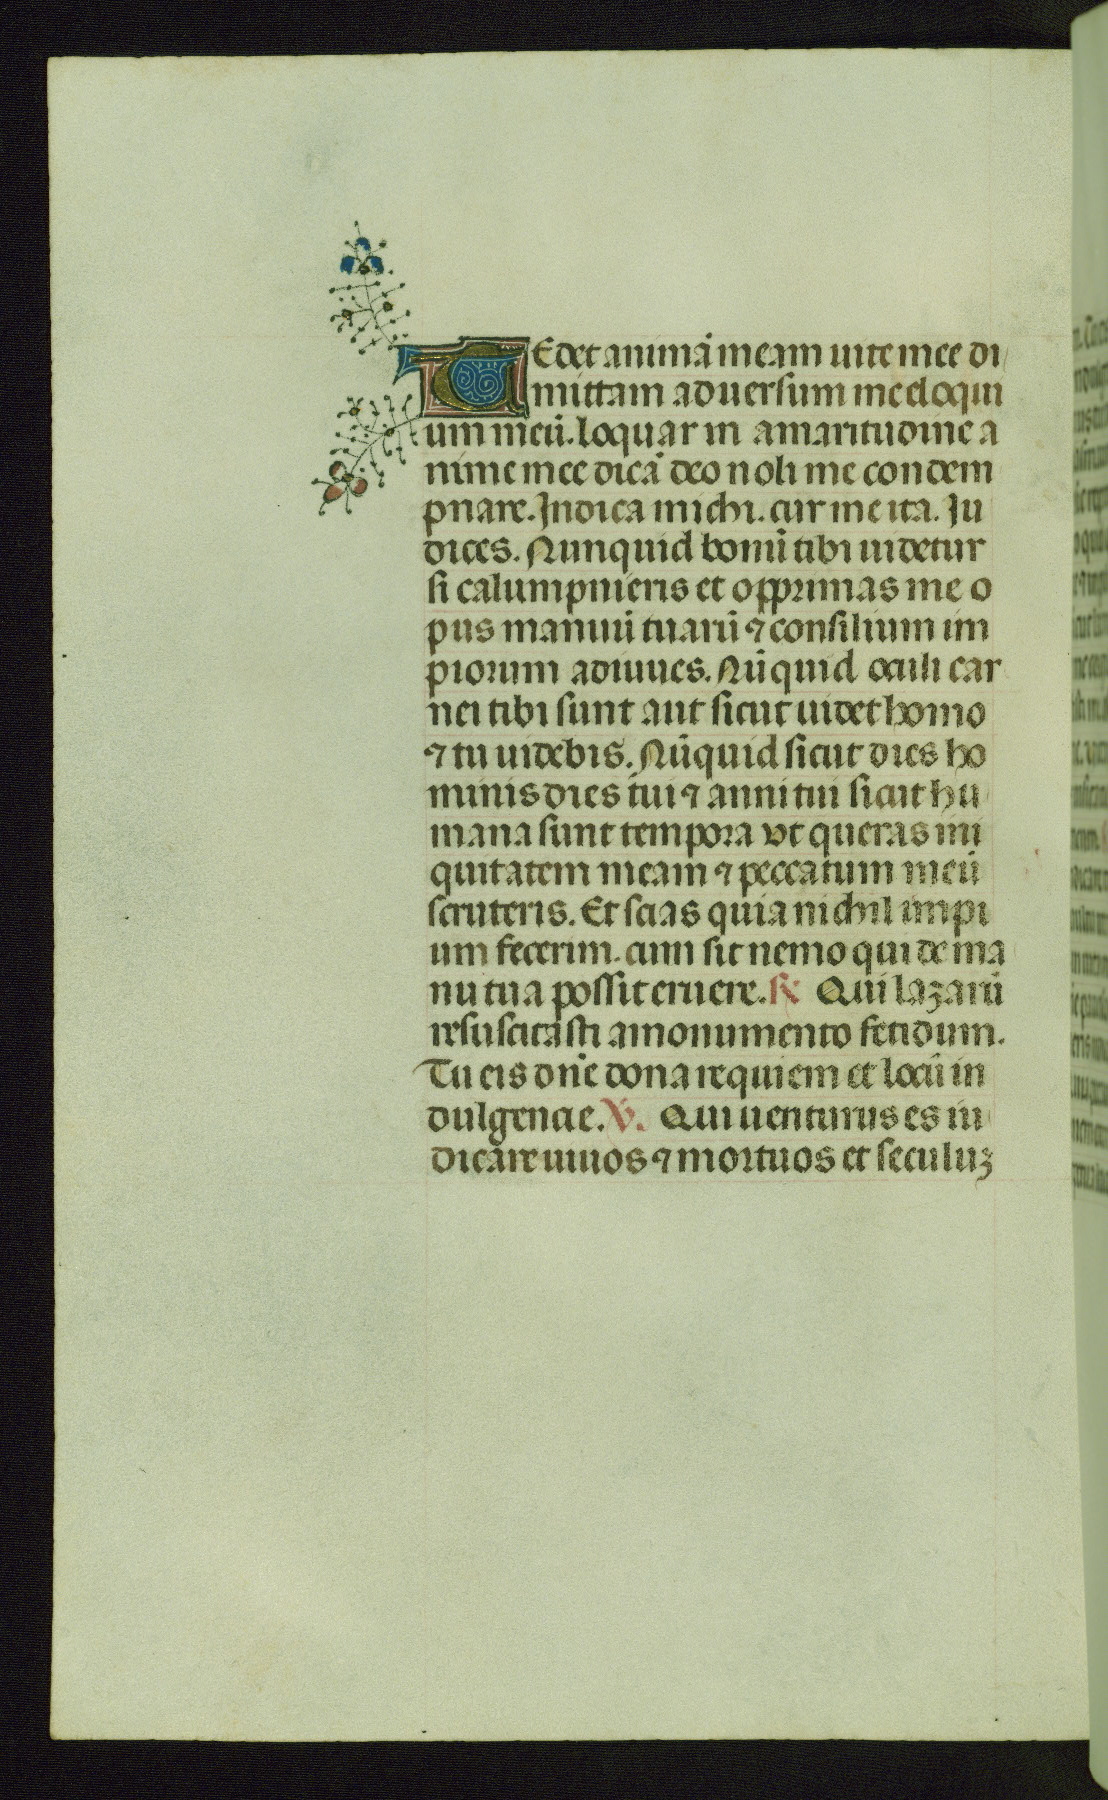 TEdet animā meam uite mee di
mittam aduersum me eloqui
um meū. loquar in amaritudine a
nime mee dicā deo noli me condem
pnare. Indica michi. cur me ita. Iu
dices. Nunquid bonū tibi uidetur
si calumpnieris et opprimas me o
pus manuū tuarū ⁊ consilium im
piorum adiuues. Nūquid oculi car
nei tibi sunt aut sicut uidet homo
⁊ tu uidebis. Nūquid sicut dies ho
minis dies tui ⁊ anni tui sicut hu
mana sunt tempora vt queras ini
quitatem meam ⁊ peccatum meū
scruteris. Et scias quia nichil impi
um fecerim. cum sit nemo qui de ma
nu tua possit eruere. ℟ Qui lazarū
resuscitasti a monumento fetidum.
Tu eis dn̄e dona requiem et locū in
dulgencie. ℣. Qui uenturus es iu
dicare uiuos ⁊ mortuos et seculuꝫ